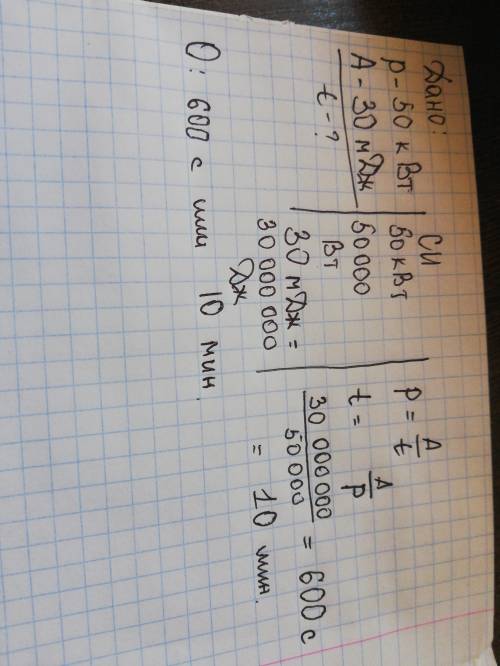 Дано:
P - 50 кВт
A - 30 мДж
t - ?
СИ
50 кВт
50 000
Вт
30 мДж =
30 000 000
Дж
P = A/t
t = A/P
30 000 000/50 000 = 600 с
= 10 мин.
О: 600 с или 10 мин.